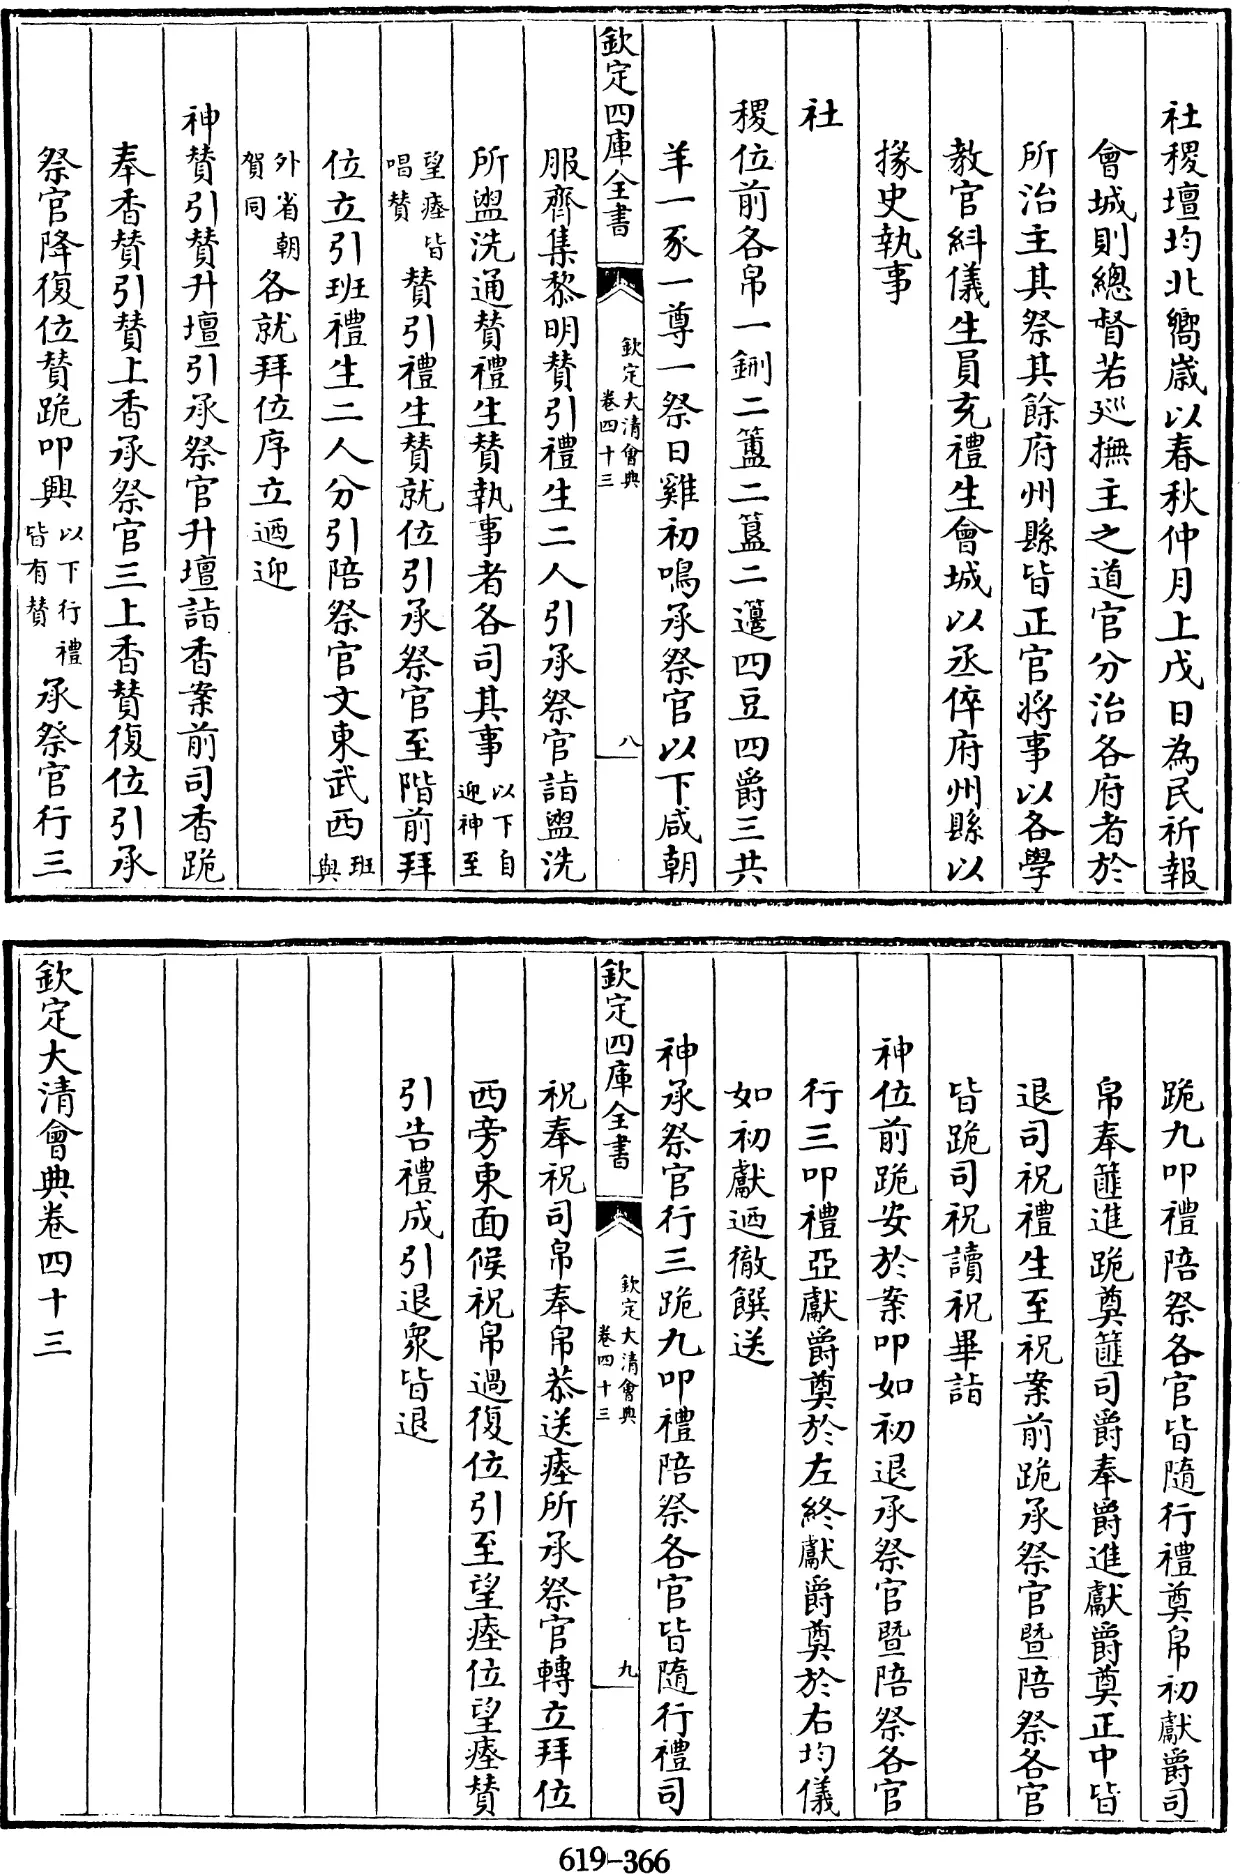 社稷壇均北嚮歲以春秋仲月上戊日為民祈報
會城則總督若廵撫主之道官分治各府者於
所治主其祭其餘府州縣皆正官將事以各學
教官糾儀生員充禮生會城以丞倅府州縣以
掾史執事
社
稷位前各帛一鉶二簠二簋二籩四豆四爵三共
羊一豕一尊一祭日雞初鳴承祭官以下咸朝
欽定四庫全書
欽定大清會典
卷四十三
八
服齊集黎明贊引禮生二人引承祭官詣盥洗
所盥洗通贊禮生贊執事者各司其事以下自迎神至
望瘞皆唱贊贊引禮生贊就位引承祭官至階前拜
位立引班禮生二人分引陪祭官文東武西班與
外省朝賀同各就拜位序立迺迎
神贊引贊升壇引承祭官升壇詣香案前司香跪
奉香贊引贊上香承祭官三上香贊復位引承
祭官降復位贊跪叩興以下行禮皆有贊承祭官行三
跪九叩禮陪祭各官皆隨行禮奠帛初獻爵司
帛奉篚進跪奠篚司爵奉爵進獻爵奠正中皆
退司祝禮生至祝案前跪承祭官暨陪祭各官
皆跪司祝讀祝畢詣
神位前跪安於案叩如初退承祭官暨陪祭各官
行三叩禮亞獻爵奠於左終獻爵奠於右均儀
如初獻迺徹饌送
神承祭官行三跪九叩禮陪祭各官皆隨行禮司
欽定四庫全書
欽定大清會典
卷四十三
九
祝奉祝司帛奉帛恭送瘞所承祭官轉立拜位
西旁東面候祝帛過復位引至望瘞位望瘞贊
引告禮成引退衆皆退
欽定大清會典卷四十三
619-366